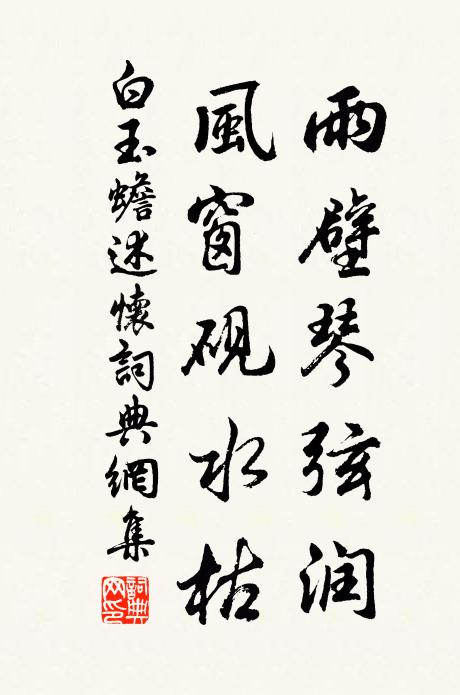 雨壁琴弦润
風窗硯水枯
白玉蟾述懷詞典網集
詞典網印